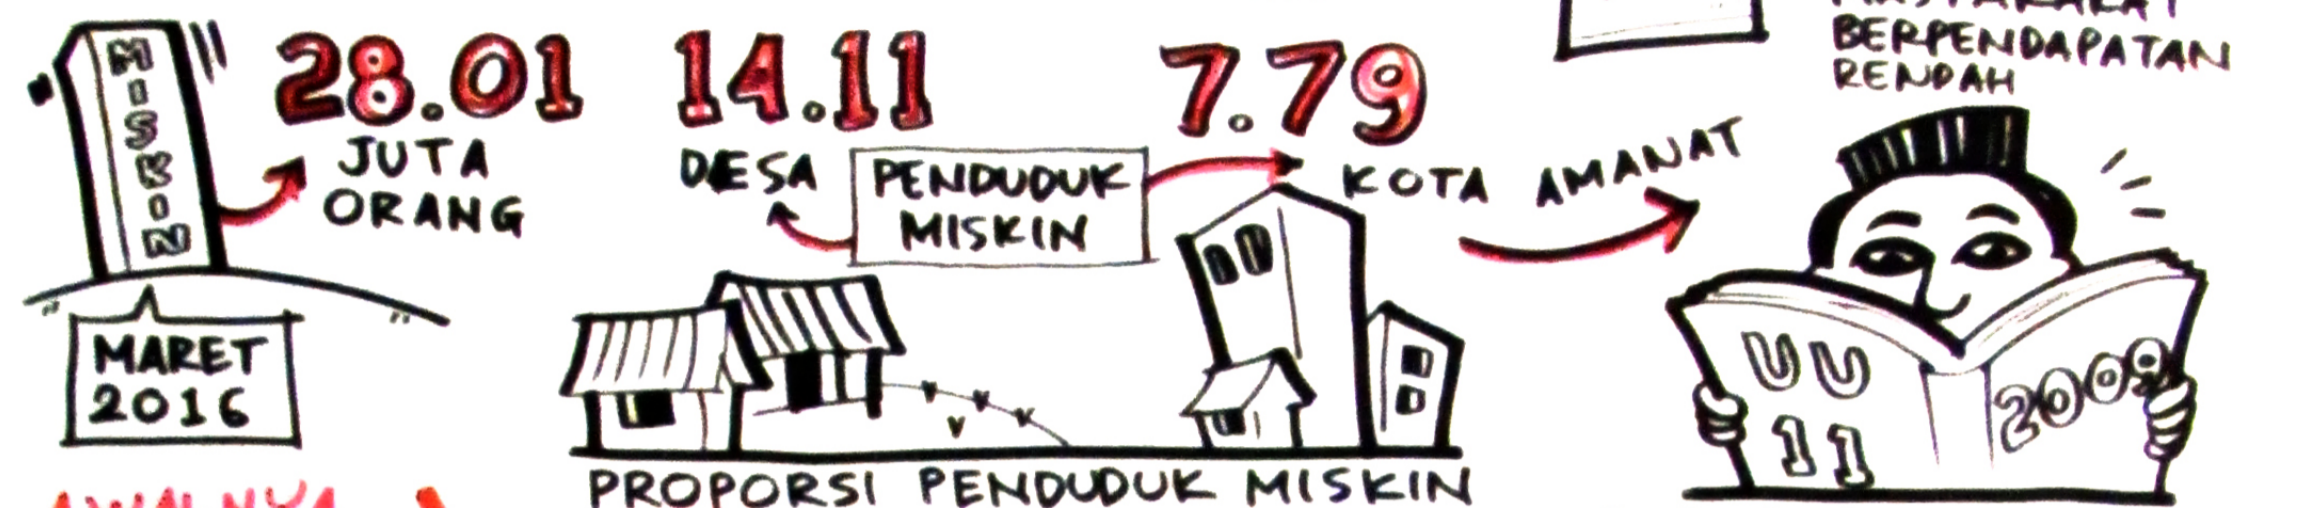 MISKIN
28.01
JUTA
ORANG
MARET
2016
14.11
DESA
PENDUDUK
MISKIN
7.79
KOTA
PROPORSI PENDUDUK MISKIN
AMANAT
BERPENDAPATAN
RENDAH
UU
11
2009